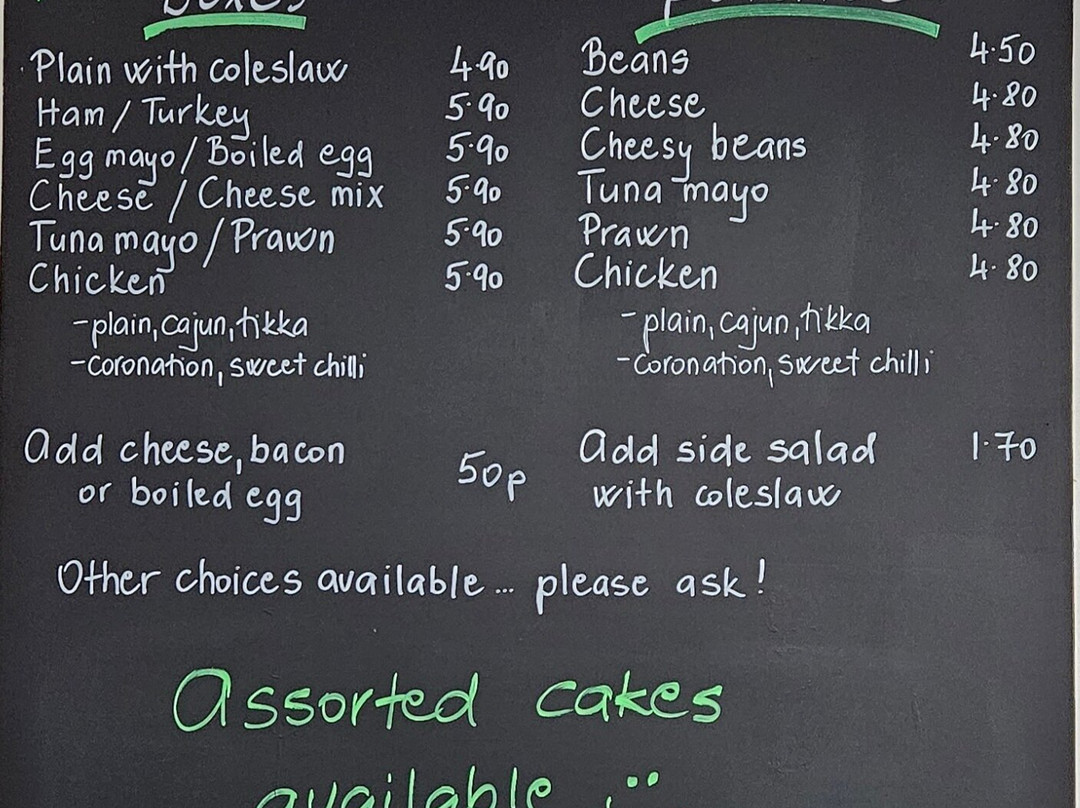 Boxes
Plain with coleslaw 4.90
Ham / Turkey 5.90
Egg mayo / Boiled egg 5.90
Cheese / Cheese mix 5.90
Tuna mayo / Prawn 5.90
Chicken 5.90
- plain, cajun, tikka
- coronation, sweet chilli
Add cheese, bacon
or boiled egg 50p
Beans 4.50
Cheese 4.80
Cheesy beans 4.80
Tuna mayo 4.80
Prawn 4.80
Chicken 4.80
- plain, cajun, tikka
- coronation, sweet chilli
Add side salad 1.70
with coleslaw
Other choices available... please ask!
Assorted cakes
available